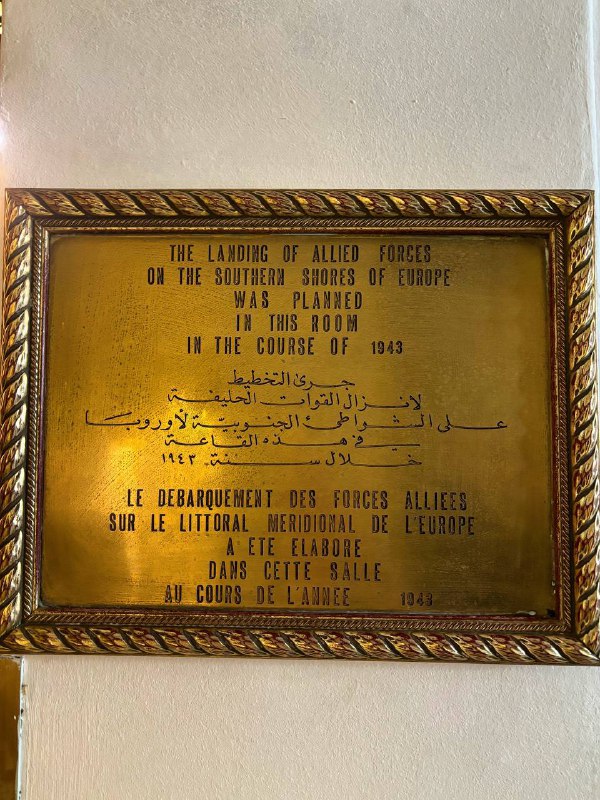 THE LANDING OF ALLIED FORCES
ON THE SOUTHERN SHORES OF EUROPE
WAS PLANNED
IN THIS ROOM
IN THE COURSE OF 1943
جرى التخطيط
لانزال القوات الحليفة
على الشواطئ الجنوبيّة لأوروبا
في هذه القاعة
خلال سنة ١٩٤٣
LE DEBARQUEMENT DES FORCES ALLIEES
SUR LE LITTORAL MERIDIONAL DE L'EUROPE
A ETE ELABORE
DANS CETTE SALLE
AU COURS DE L'ANNEE 1943